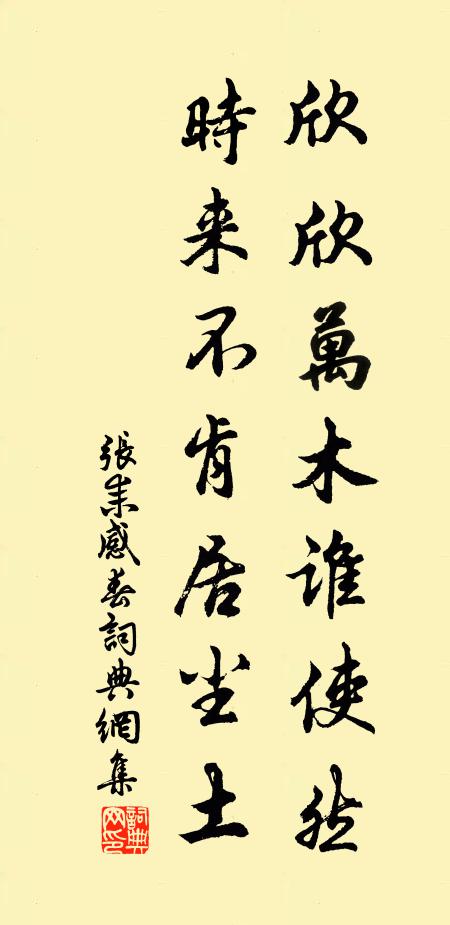 欣欣萬木誰使然
時来不肯居尘土
張耒感春詞典網集
詞典网印